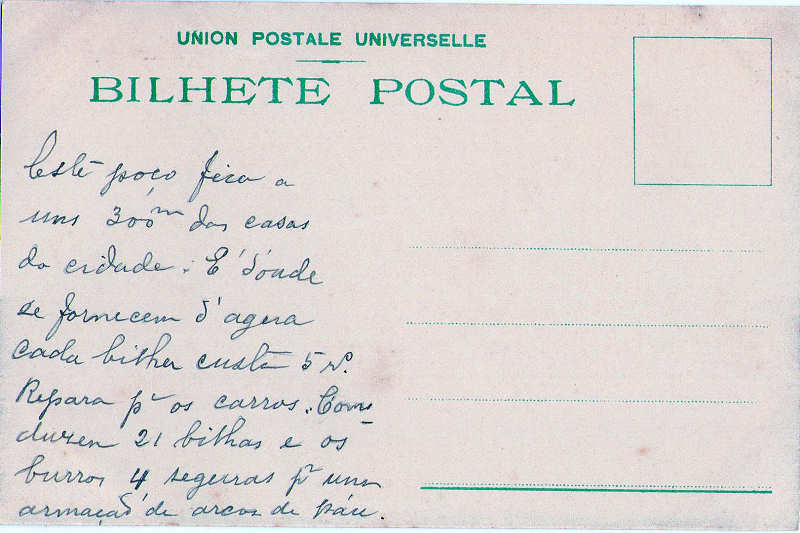 UNION POSTALE UNIVERSELLE
BILHETE POSTAL
Este poço fica a
uns 300m das casas
da cidade. É d'onde
se fornecem d'agua
cada bilha custa 5 rs.
Repara pa os carros. Con-
duzem 21 bilhas e os
burros 4 seguras pr uma
armação de arcos de páu.